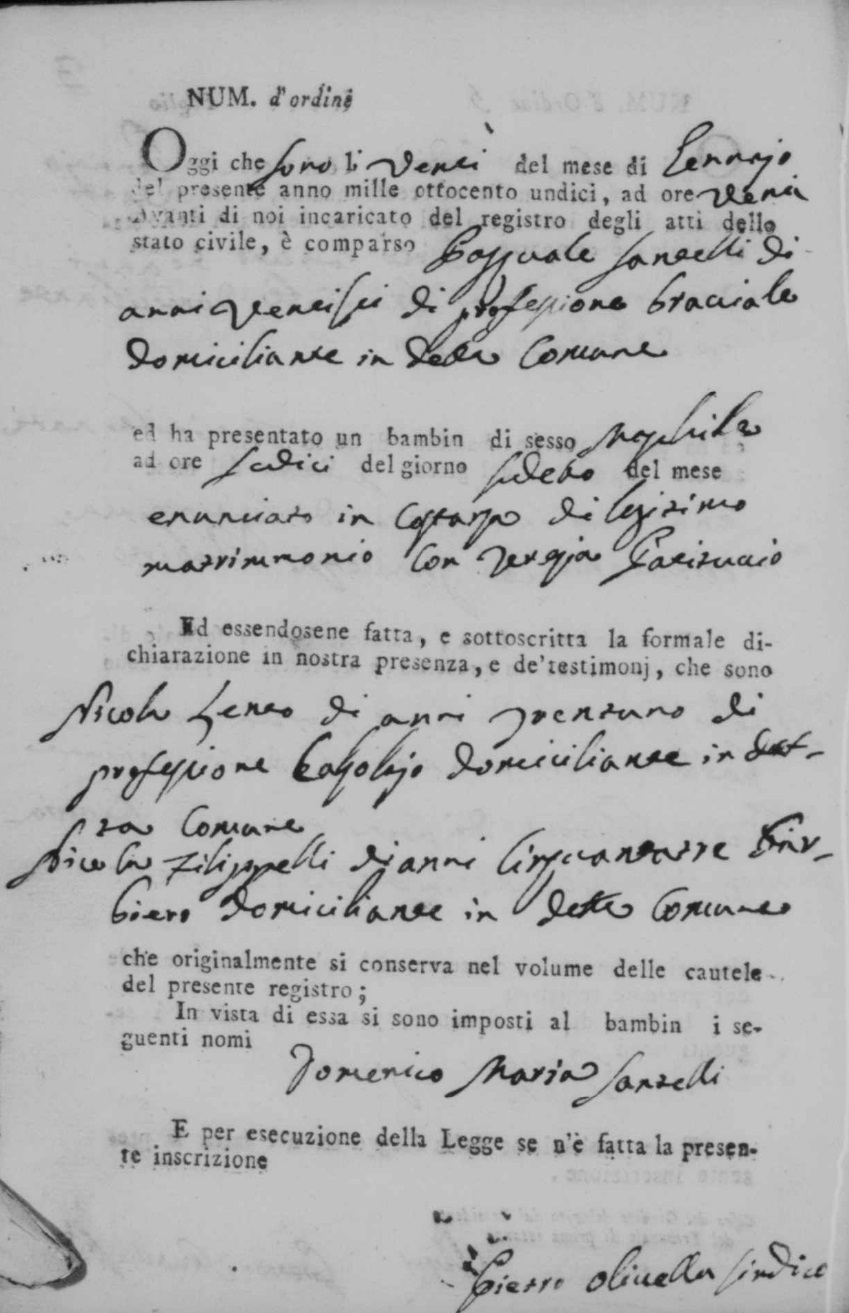 NUM. d'ordine
Oggi che sono li venti del mese di Gennajo
del presente anno mille ottocento undici, ad ore venti
Avanti di noi incaricato del registro degli atti dello
stato civile, è comparso Pasquale Santelli di
anni ventisei di professione bracciale
domiciliante in detta Comune
ed ha presentato un bambin di sesso Maschile
ad ore sedici del giorno sudetto del mese
enunciato in costanza di legitimo
matrimmonio con
Ed essendosene fatta, e sottoscritta la formale di-
chiarazione in nostra presenza, e de'testimonj, che sono
Nicola di anni trentuno di
professione domiciliante in det-
ta Comune
Nicola Filippelli di anni Cinquantatre Bar-
biero domiciliante in detta Comune
che originalmente si conserva nel volume delle cautele
del presente registro;
In vista di essa si sono imposti al bambin i se-
guenti nomi
Domenico Maria Santelli
E per esecuzione della Legge se n'è fatta la presen-
te inscrizione
Pietro Olivella Sindico